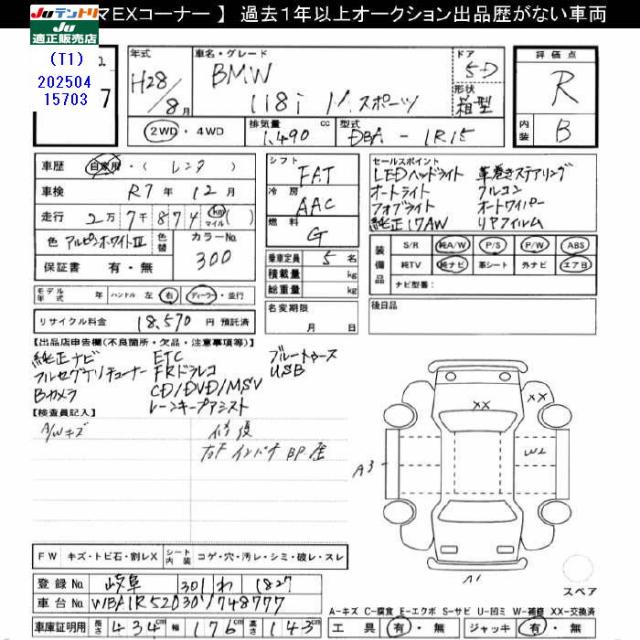 マEXコーナー 】 過去1年以上オークション出品歴がない車両
Juテントリ
Ju
適正販売店
(T1)
202504
15703
7
年式
H28
8月
車名・グレード
BMW
118i M.スポーツ
ドア
5D
形状
箱型
2WD ・ 4WD
排気量
1,490 cc
型式
DBA - 1R15
評価点
R
内装
B
車歴 自家用・( レンタ )
車検 R7年 12月
走行 2万7千874 km マイル ( )
色 アルピンホワイトIII
色替
カラーNo. 300
保証書 有・無
シフト FAT
冷房 AAC
燃料 G
乗車定員 5 名
積載量 kg
総重量 kg
名変期限
月 日
セールスポイント
LEDヘッドライト 革巻きステアリング
オートライト フルコン
フォグライト オートワイパー
純正17AW リヤフィルム
装備品
S/R 純A/W P/S P/W ABS
純TV 純ナビ 革シート 外ナビ エアB
ナビ型番:
後日品
モデル年式 年 ハンドル 左・右 ディーラー・並行
リサイクル料金 18,570 円 預託済
【出品店申告欄(不良箇所・欠品・注意事項等)】
純正ナビ ETC ブルートゥース
フルセグTVチューナー FRドラレコ USB
Bカメラ CD/DVD/MSV
レーンキープアシスト
【検査員記入】
A/Wキズ 修復
XX
XX
W2
A3
A1
FW キズ・トビ石・割レX シート内装 コゲ・穴・汚レ・シミ・破レ・スレ
スペア
登録No. 岐阜 301 わ 1827
車台No. WBA1R52030V748777
A-キズ C-腐食 E-エクボ S-サビ U-凹ミ W-補修 XX-交換済
車庫証明用 長さ 434 cm 幅 176 cm 高さ 143 cm
工具 有・無 ジャッキ 有・無